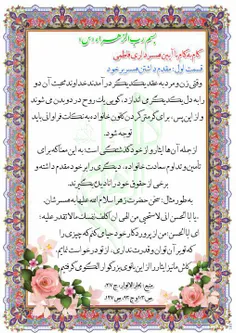 گام به گام با آیین همسرداری فاطمی
قسمت اول: مقدم داشتن همسر بر خود
وقتی زن و مرد به عقد یکدیگر در آمدند خداوند محبت آن دو
را به دل یکدیگر می اندازد، گویی یک روح در دو بدن می شوند
و از این پس، برای گرم تر کردن کانون خانواده به نکات فراوانی باید
توجه شود.
از جمله آن ها ایثار و از خودگذشتگی است به این معنا که برای
تأمین و تداوم سعادت خانواده، دیگری را بر خود مقدم داشته و
برخی از حقوق خود را نادیده بگیرند.
به طور مثال: سخن حضرت زهرا سلام الله علیها به همسرشان
یا ابا الحسن انی لاستحیی من الهی ان اکلف نفسک ما لا تقدر علیه؛
ای ابا الحسن! من از پروردگار خود حیا می کنم که چیزی را
که تو بر آن توان و قدرت نداری، از تو درخواست نمایم،
کاش ما نیز ایثار را از این بانوی بزرگوار الگو می گرفتیم
منبع: بحار الانوار، ج